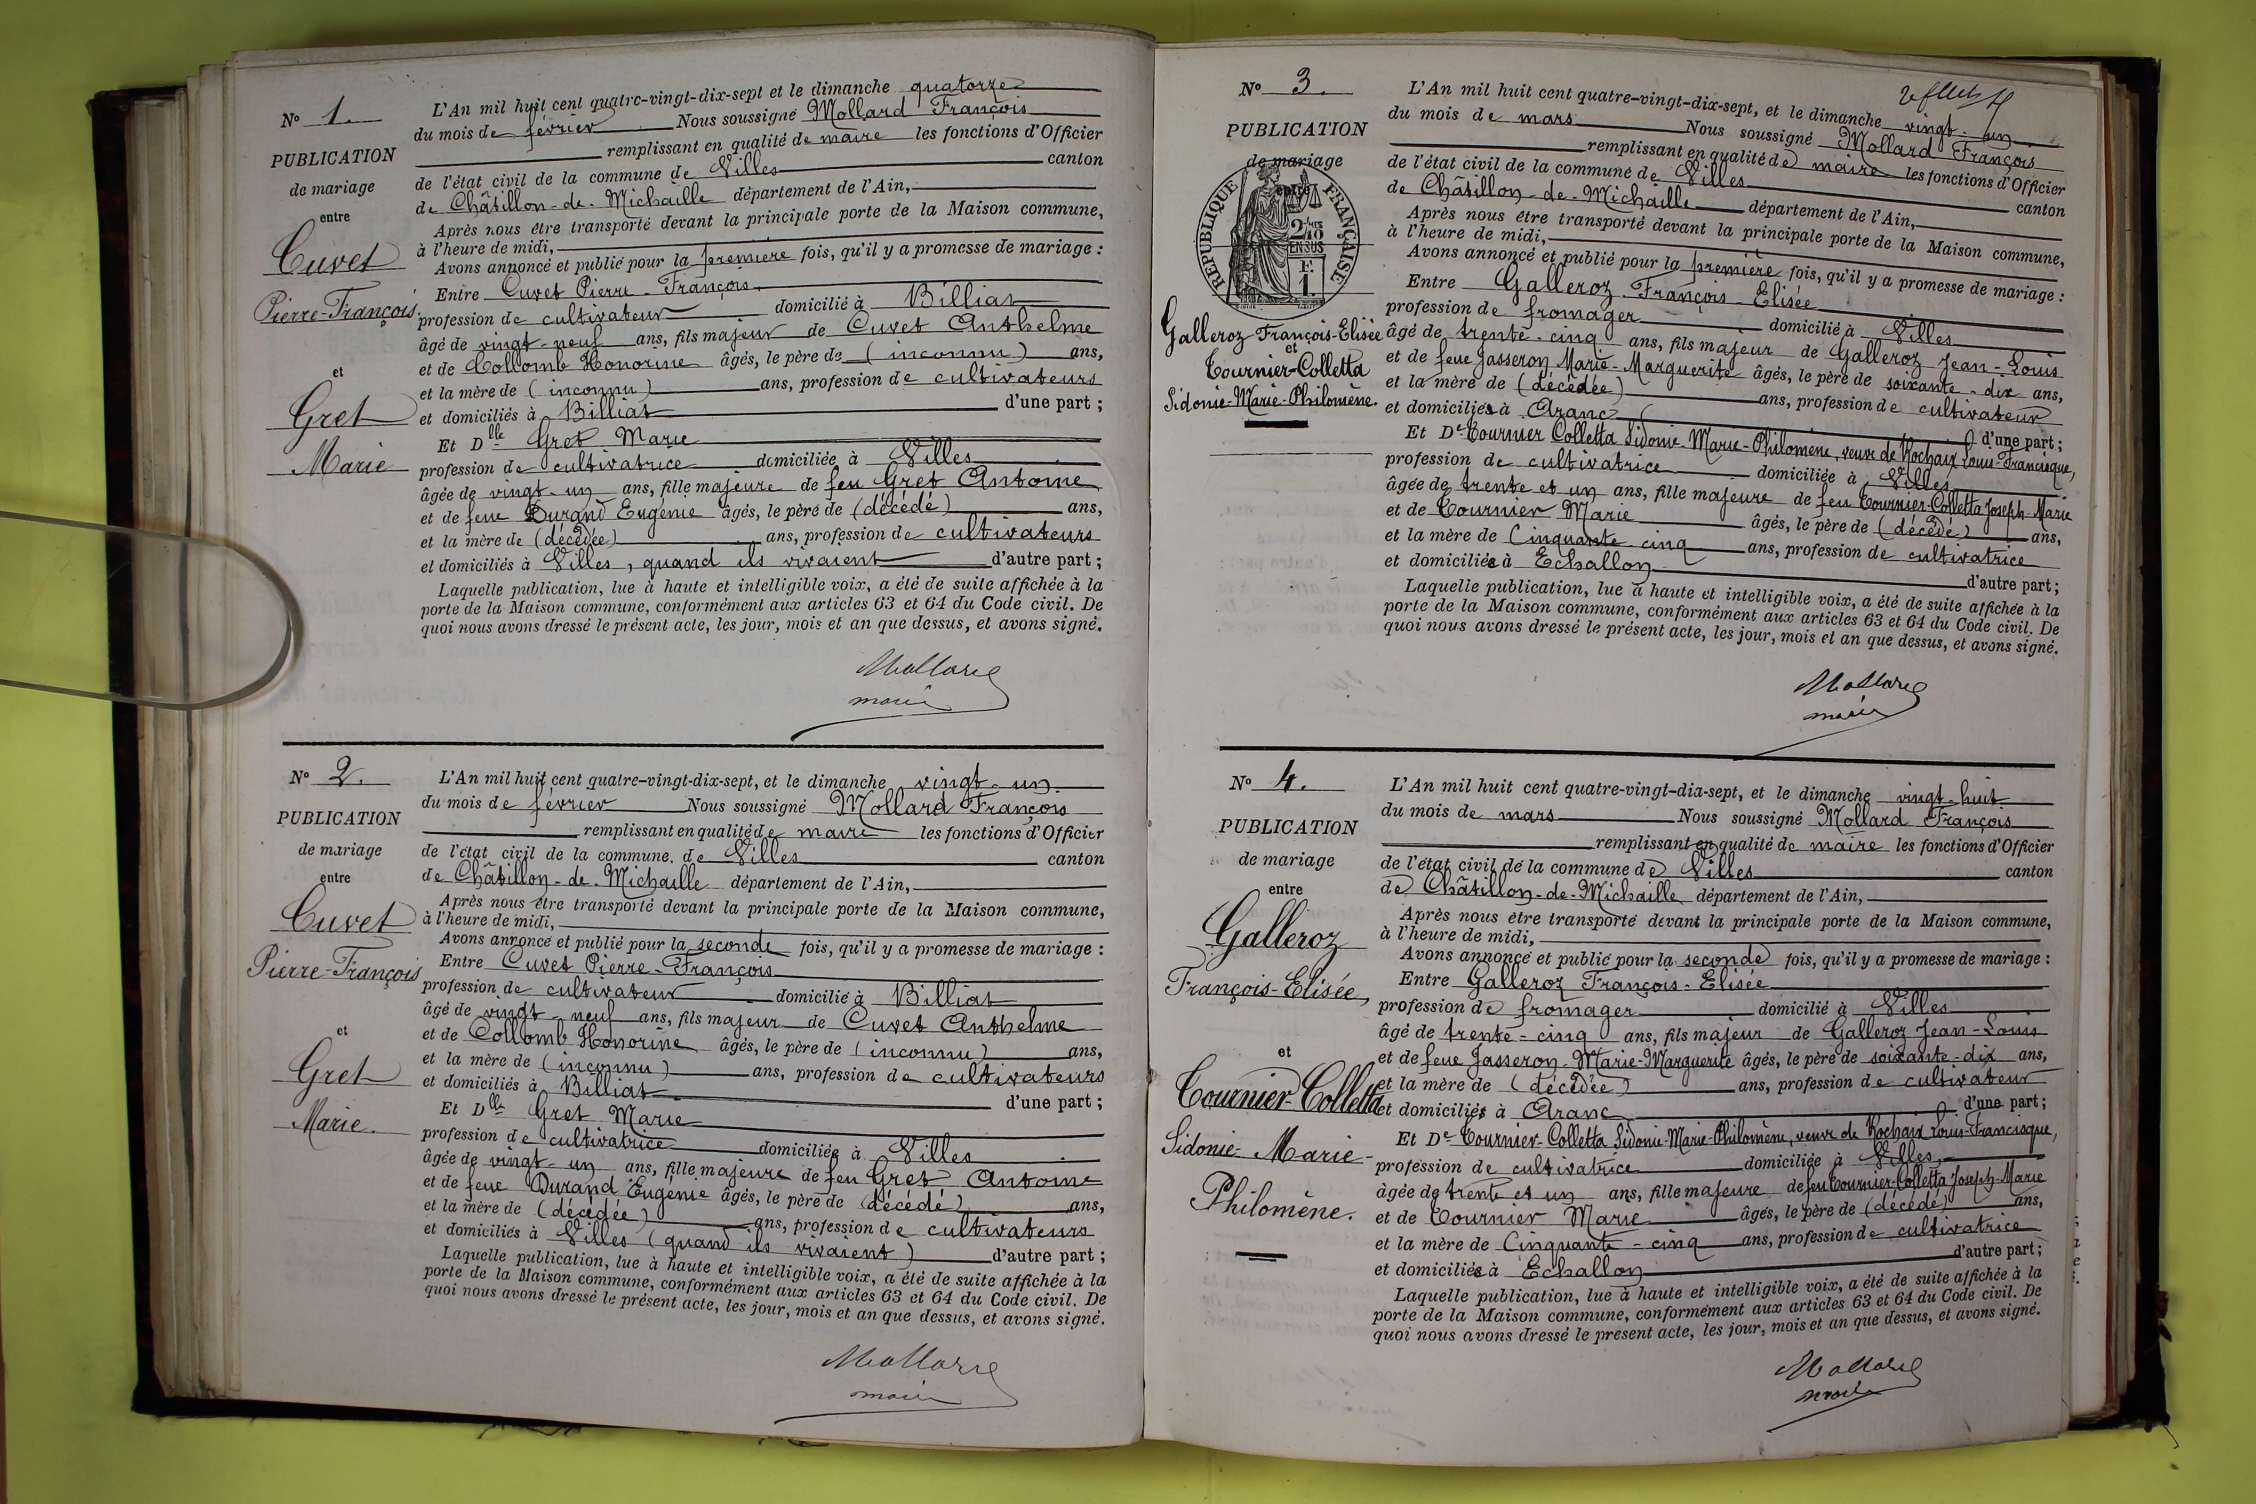 N° 1.
PUBLICATION
de mariage
entre
Cuvet
Pierre-François
et
Gret
Marie
L'An mil huit cent quatre-vingt-dix-sept et le dimanche quatorze
du mois de février Nous soussigné Mollard François
remplissant en qualité de maire les fonctions d'Officier
de l'état civil de la commune de Villes canton
de Châtillon-de-Michaille département de l'Ain,
Après nous être transporté devant la principale porte de la Maison commune,
à l'heure de midi,
Avons annoncé et publié pour la première fois, qu'il y a promesse de mariage :
Entre Cuvet Pierre-François
profession de cultivateur domicilié à Billiat
âgé de vingt-neuf ans, fils majeur de Cuvet Anthelme
et de Collomb Honorine âgés, le père de (inconnu) ans,
et la mère de (inconnu) ans, profession de cultivateurs
et domiciliés à Billiat d'une part ;
Et Dlle Gret Marie
profession de cultivatrice domiciliée à Villes
âgée de vingt-un ans, fille majeure de feu Gret Antoine
et de feue Durand Eugénie âgés, le père de (décédé) ans,
et la mère de (décédée) ans, profession de cultivateurs
et domiciliés à Villes, quand ils vivaient d'autre part ;
Laquelle publication, lue à haute et intelligible voix, a été de suite affichée à la
porte de la Maison commune, conformément aux articles 63 et 64 du Code civil. De
quoi nous avons dressé le présent acte, les jour, mois et an que dessus, et avons signé.
Mollard
maire
N° 2.
PUBLICATION
de mariage
entre
Cuvet
Pierre-François
et
Gret
Marie.
L'An mil huit cent quatre-vingt-dix-sept, et le dimanche vingt-un
du mois de février Nous soussigné Mollard François
remplissant en qualité de maire les fonctions d'Officier
de l'état civil de la commune de Villes canton
de Châtillon-de-Michaille département de l'Ain,
Après nous être transporté devant la principale porte de la Maison commune,
à l'heure de midi,
Avons annoncé et publié pour la seconde fois, qu'il y a promesse de mariage :
Entre Cuvet Pierre-François
profession de cultivateur domicilié à Billiat
âgé de vingt-neuf ans, fils majeur de Cuvet Anthelme
et de Collomb Honorine âgés, le père de (inconnu) ans,
et la mère de (inconnu) ans, profession de cultivateurs
et domiciliés à Billiat d'une part ;
Et Dlle Gret Marie
profession de cultivatrice domiciliée à Villes
âgée de vingt-un ans, fille majeure de feu Gret Antoine
et de feue Durand Eugénie âgés, le père de (décédé) ans,
et la mère de (décédée) ans, profession de cultivateurs
et domiciliés à Villes (quand ils vivaient) d'autre part ;
Laquelle publication, lue à haute et intelligible voix, a été de suite affichée à la
porte de la Maison commune, conformément aux articles 63 et 64 du Code civil. De
quoi nous avons dressé le présent acte, les jour, mois et an que dessus, et avons signé.
Mollard
maire
N° 3.
PUBLICATION
de mariage
entre
RÉPUBLIQUE FRANÇAISE
2/10
EN SUS
F.
1
Galleroz François-Elisée
et
Tournier-Colletta
Sidonie-Marie-Philomène.
L'An mil huit cent quatre-vingt-dix-sept, et le dimanche vingt-un
du mois de mars Nous soussigné Mollard François
remplissant en qualité de maire les fonctions d'Officier
de l'état civil de la commune de Villes canton
de Châtillon-de-Michaille département de l'Ain,
Après nous être transporté devant la principale porte de la Maison commune,
à l'heure de midi,
Avons annoncé et publié pour la première fois, qu'il y a promesse de mariage :
Entre Galleroz François-Elisée
profession de fromager domicilié à Villes
âgé de trente-cinq ans, fils majeur de Galleroz Jean-Louis
et de feue Jasseron Marie-Marguerite âgés, le père de soixante-dix ans,
et la mère de (décédée) ans, profession de cultivateur
et domiciliés à Aranc d'une part ;
Et De Tournier Colletta Sidonie-Marie-Philomène, veuve de Rochaix Louis-Francisque,
profession de cultivatrice domiciliée à Villes
âgée de trente et un ans, fille majeure de feu Tournier-Colletta Joseph-Marie
et de Tournier Marie âgés, le père de (décédé) ans,
et la mère de Cinquante-cinq ans, profession de cultivatrice
et domiciliés à Echallon d'autre part ;
Laquelle publication, lue à haute et intelligible voix, a été de suite affichée à la
porte de la Maison commune, conformément aux articles 63 et 64 du Code civil. De
quoi nous avons dressé le présent acte, les jour, mois et an que dessus, et avons signé.
Mollard
maire
N° 4.
PUBLICATION
de mariage
entre
Galleroz
François-Elisée,
et
Tournier-Colletta
Sidonie-Marie-
Philomène.
L'An mil huit cent quatre-vingt-dix-sept, et le dimanche vingt-huit
du mois de mars Nous soussigné Mollard François
remplissant en qualité de maire les fonctions d'Officier
de l'état civil de la commune de Villes canton
de Châtillon-de-Michaille département de l'Ain,
Après nous être transporté devant la principale porte de la Maison commune,
à l'heure de midi,
Avons annoncé et publié pour la seconde fois, qu'il y a promesse de mariage :
Entre Galleroz François-Elisée
profession de fromager domicilié à Villes
âgé de trente-cinq ans, fils majeur de Galleroz Jean-Louis
et de feue Jasseron Marie-Marguerite âgés, le père de soixante-dix ans,
et la mère de (décédée) ans, profession de cultivateur
et domiciliés à Aranc d'une part ;
Et De Tournier-Colletta Sidonie-Marie-Philomène, veuve de Rochaix Louis-Francisque,
profession de cultivatrice domiciliée à Villes,
âgée de trente et un ans, fille majeure de feu Tournier-Colletta Joseph-Marie
et de Tournier Marie âgés, le père de (décédé) ans,
et la mère de Cinquante-cinq ans, profession de cultivatrice
et domiciliés à Echallon d'autre part ;
Laquelle publication, lue à haute et intelligible voix, a été de suite affichée à la
porte de la Maison commune, conformément aux articles 63 et 64 du Code civil. De
quoi nous avons dressé le présent acte, les jour, mois et an que dessus, et avons signé.
Mollard
maire